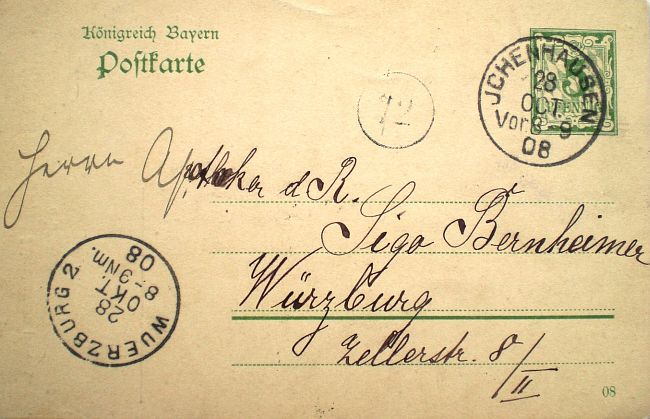 Königreich Bayern
Postkarte
JCHENHAUSEN
28
OCT.
Vor. 8-9
08
5
PFENNIG
72
Herrn Apotheker d. R.
Sigo Bernheimer
Würzburg
Zellerstr. 8/II
WUERZBURG 2
28
OKT.
8-9 Nm.
08
08